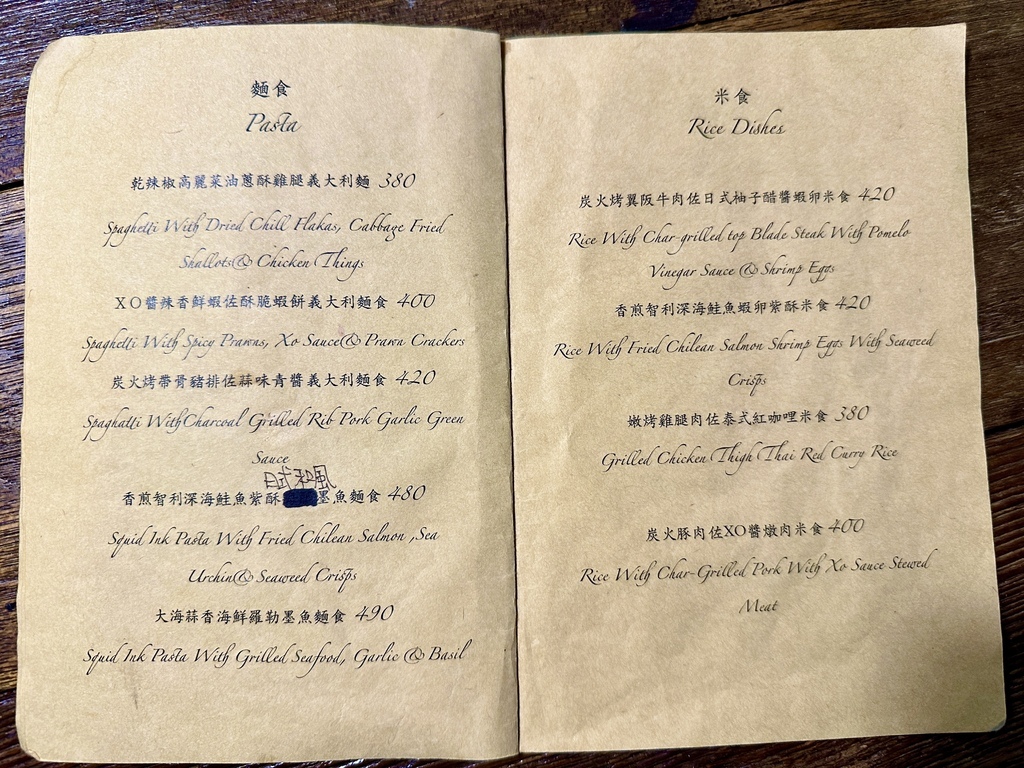 麵食
Pasta
乾辣椒高麗菜油蔥酥雞腿義大利麵 380
Spaghetti With Dried Chill Flakas, Cabbage Fried
Shallots& Chicken Things
XO醬辣香鮮蝦佐酥脆蝦餅義大利麵食 400
Spaghetti With Spicy Prawns, Xo Sauce& Prawn Crackers
炭火烤帶骨豬排佐蒜味青醬義大利麵食 420
Spaghatti WithCharcoal Grilled Rib Pork Garlic Green
Sauce
日式和風
香煎智利深海鮭魚紫酥墨魚麵食 480
Squid Ink Pasta With Fried Chilean Salmon ,Sea
Urchin& Seaweed Crisps
大海蒜香海鮮羅勒墨魚麵食 490
Squid Ink Pasta With Grilled Seafood, Garlic & Basil
米食
Rice Dishes
炭火烤翼阪牛肉佐日式柚子醋醬蝦卵米食 420
Rice With Char-grilled top Blade Steak With Pomelo
Vinegar Sauce & Shrimp Eggs
香煎智利深海鮭魚蝦卵紫酥米食 420
Rice With Fried Chilean Salmon Shrimp Eggs With Seaweed
Crisps
嫩烤雞腿肉佐泰式紅咖哩米食 380
Grilled Chicken Thigh Thai Red Curry Rice
炭火豚肉佐XO醬燉肉米食 400
Rice With Char-Grilled Pork With Xo Sauce Stewed
Meat